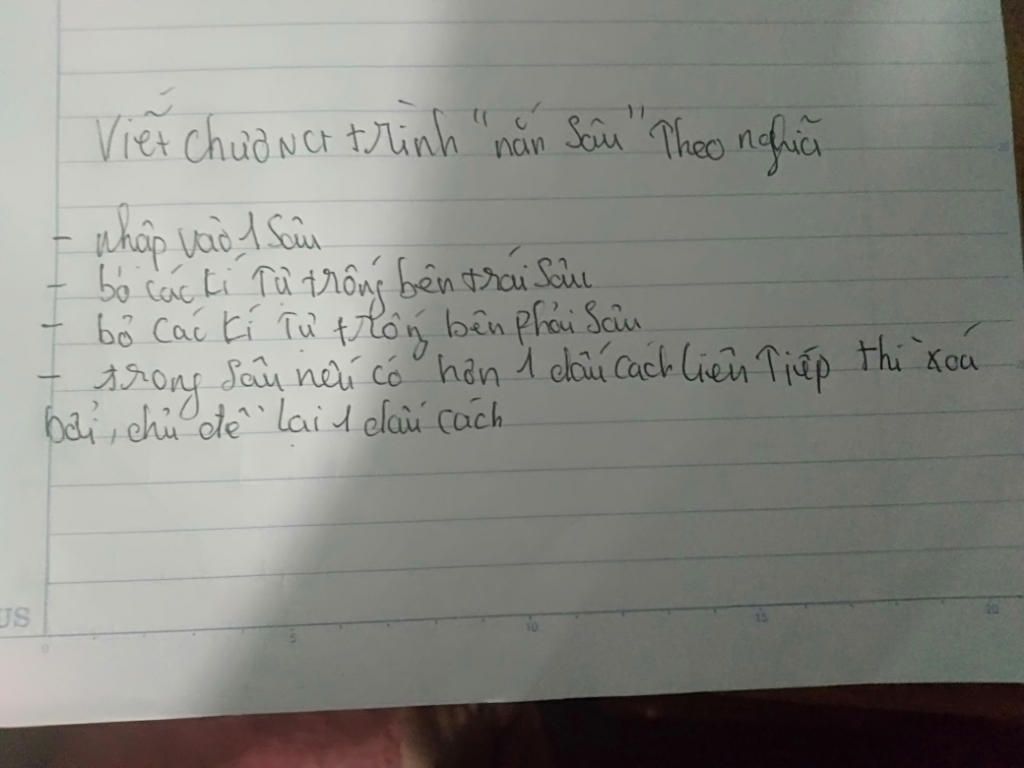 Viết chương trình "nắn sâu" Theo nghĩa
- nhập vào 1 sâu
- bỏ các kí Tử trống bên trái sâu
- bỏ các kí Tử trống bên phải sâu
- trong sâu nếu có hơn 1 dấu cách liên Tiếp thì xoá
bơi, chủ để lại 1 dấu cách
US
0 5 10 15 20